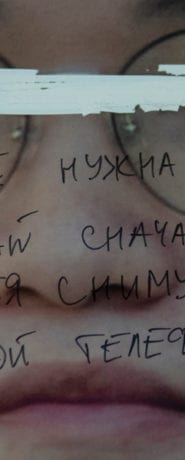 Е НУЖНА
АЙ СНАЧА
Я СНИМУ
ОЙ ТЕЛЕФ